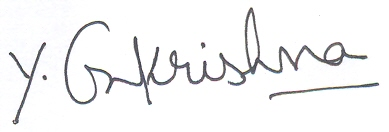 Y. Gnkrishna